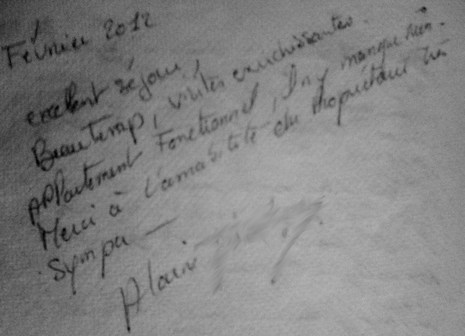 Février 2012
excellent séjour,
Beau temps, visites enrichissantes.
Appartement Fonctionnel, il n'y manque rien.
Merci à l'amabilité du propriétaire très
sympa —
Alain